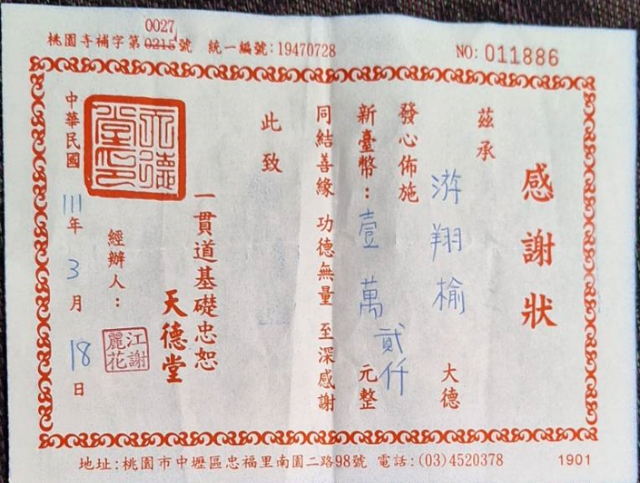 0027
桃園寺補字第0215號 統一編號:19470728
NO: 011886
感謝狀
茲承
游翔榆 大德
發心佈施
新臺幣:壹萬貳仟元整
同結善緣 功德無量 至深感謝
此致
一貫道基礎忠恕
天德堂
經辦人:
江謝麗花
天德堂印
中華民國111年3月18日
地址:桃園市中壢區忠福里南園二路98號 電話:(03)4520378
1901